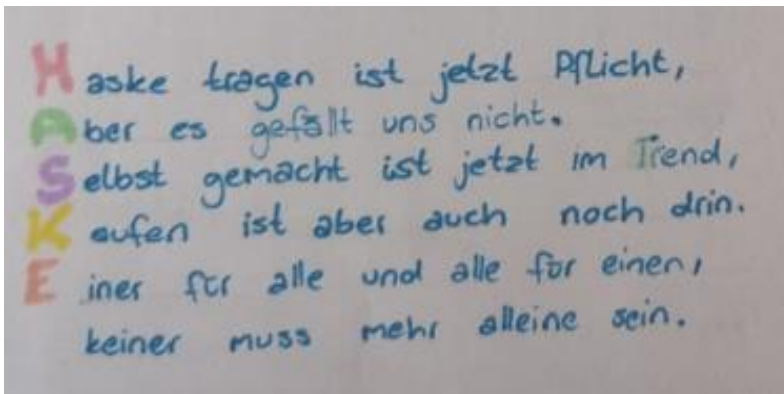 Maske tragen ist jetzt Pflicht,
Aber es gefällt uns nicht.
Selbst gemacht ist jetzt im Trend,
Kaufen ist aber auch noch drin.
Einer für alle und alle für einen,
keiner muss mehr alleine sein.